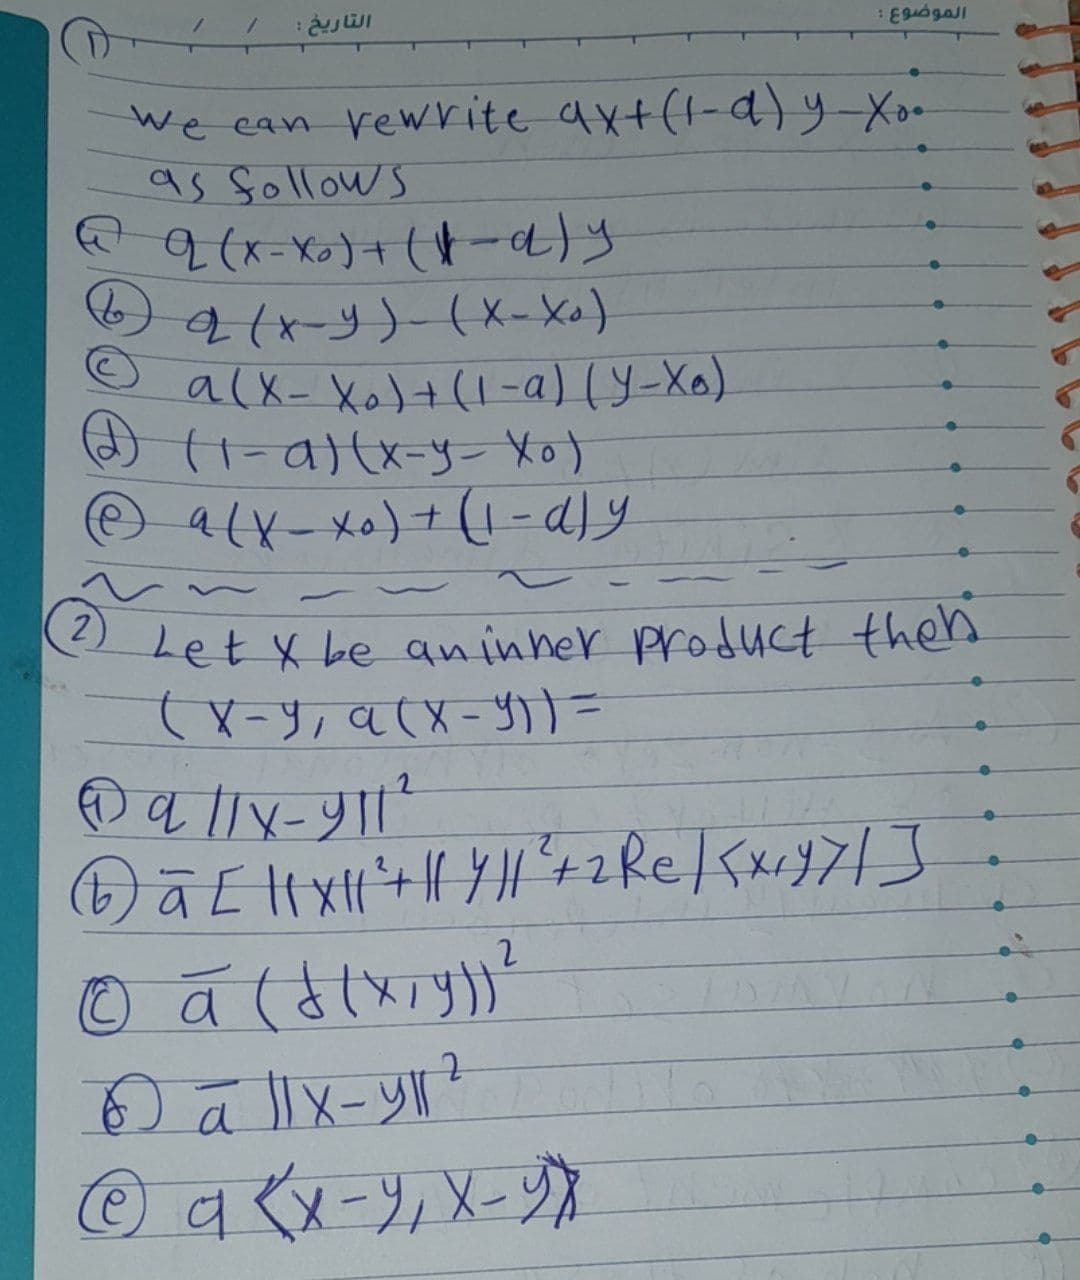 الموضوع :
التاريخ : / /
①
We can rewrite ax+(1-a)y-x₀
as follows
ⓐ a(x-x₀)+(1-a)y
ⓑ a(x-y)-(x-x₀)
ⓒ a(x-x₀)+(1-a)(y-x₀)
ⓓ (1-a)(x-y-x₀)
ⓔ a(x-x₀)+(1-a)y
② Let X be an inner product then
(x-y, a(x-y))=
ⓐ a||x-y||²
ⓑ ā[||x||²+||y||²+2Re|<x,y>|]
ⓒ ā(d(x,y))²
ⓓ ā||x-y||²
ⓔ a<x-y, x-y>